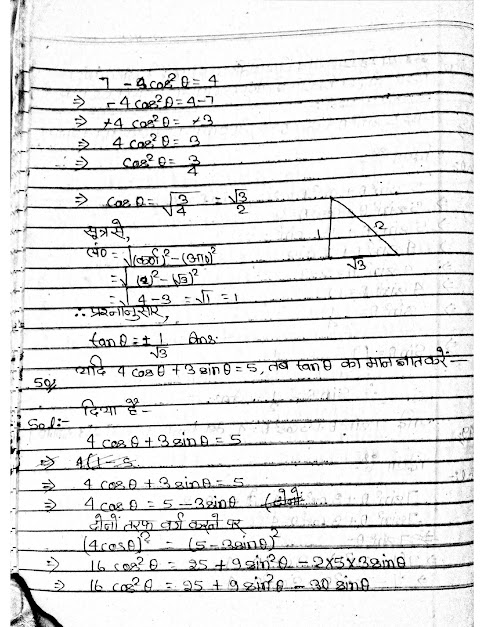 7 - 4cos²θ = 4
⇒ -4cos²θ = 4-7
⇒ +4 cos²θ = +3
⇒ 4 cos²θ = 3
⇒ cos²θ = 3/4
⇒ cosθ = √(3/4) = √3/2
सूत्र से,
लं० = √((कर्ण)² - (आ०)²)
= √((2)² - (√3)²)
= √(4 - 3) = √1 = 1
1 2 √3
∴ प्रश्नानुसार,
tanθ = ± 1/√3 Ans.
5Q यदि 4cosθ + 3sinθ = 5, तब tanθ का मान ज्ञात करें:—
Sol:- दिया है -
4 cosθ + 3 sinθ = 5
⇒ 4(1 - 5
⇒ 4 cosθ + 3 sinθ = 5
⇒ 4 cosθ = 5 - 3 sinθ
दोनों तरफ वर्ग करने पर
(4cosθ)² = (5 - 3sinθ)²
⇒ 16 cos²θ = 25 + 9 sin²θ - 2×5×3sinθ
⇒ 16 cos²θ = 25 + 9 sin²θ - 30 sinθ